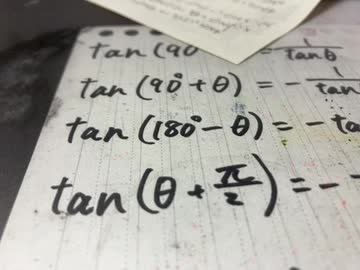 tan(90 = 1/tanθ
tan(90°+θ) = - 1/tan
tan(180°-θ) = -ta
tan(θ+π/2) = -